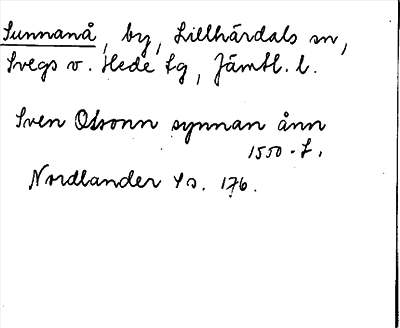 Sunnanå, by, Lillhärdals sn,
Svegs o. Hede tg, Jämtl. l.
Sven Olsonn synnan ånn
1550-t.
Nordlander Ys. 176.